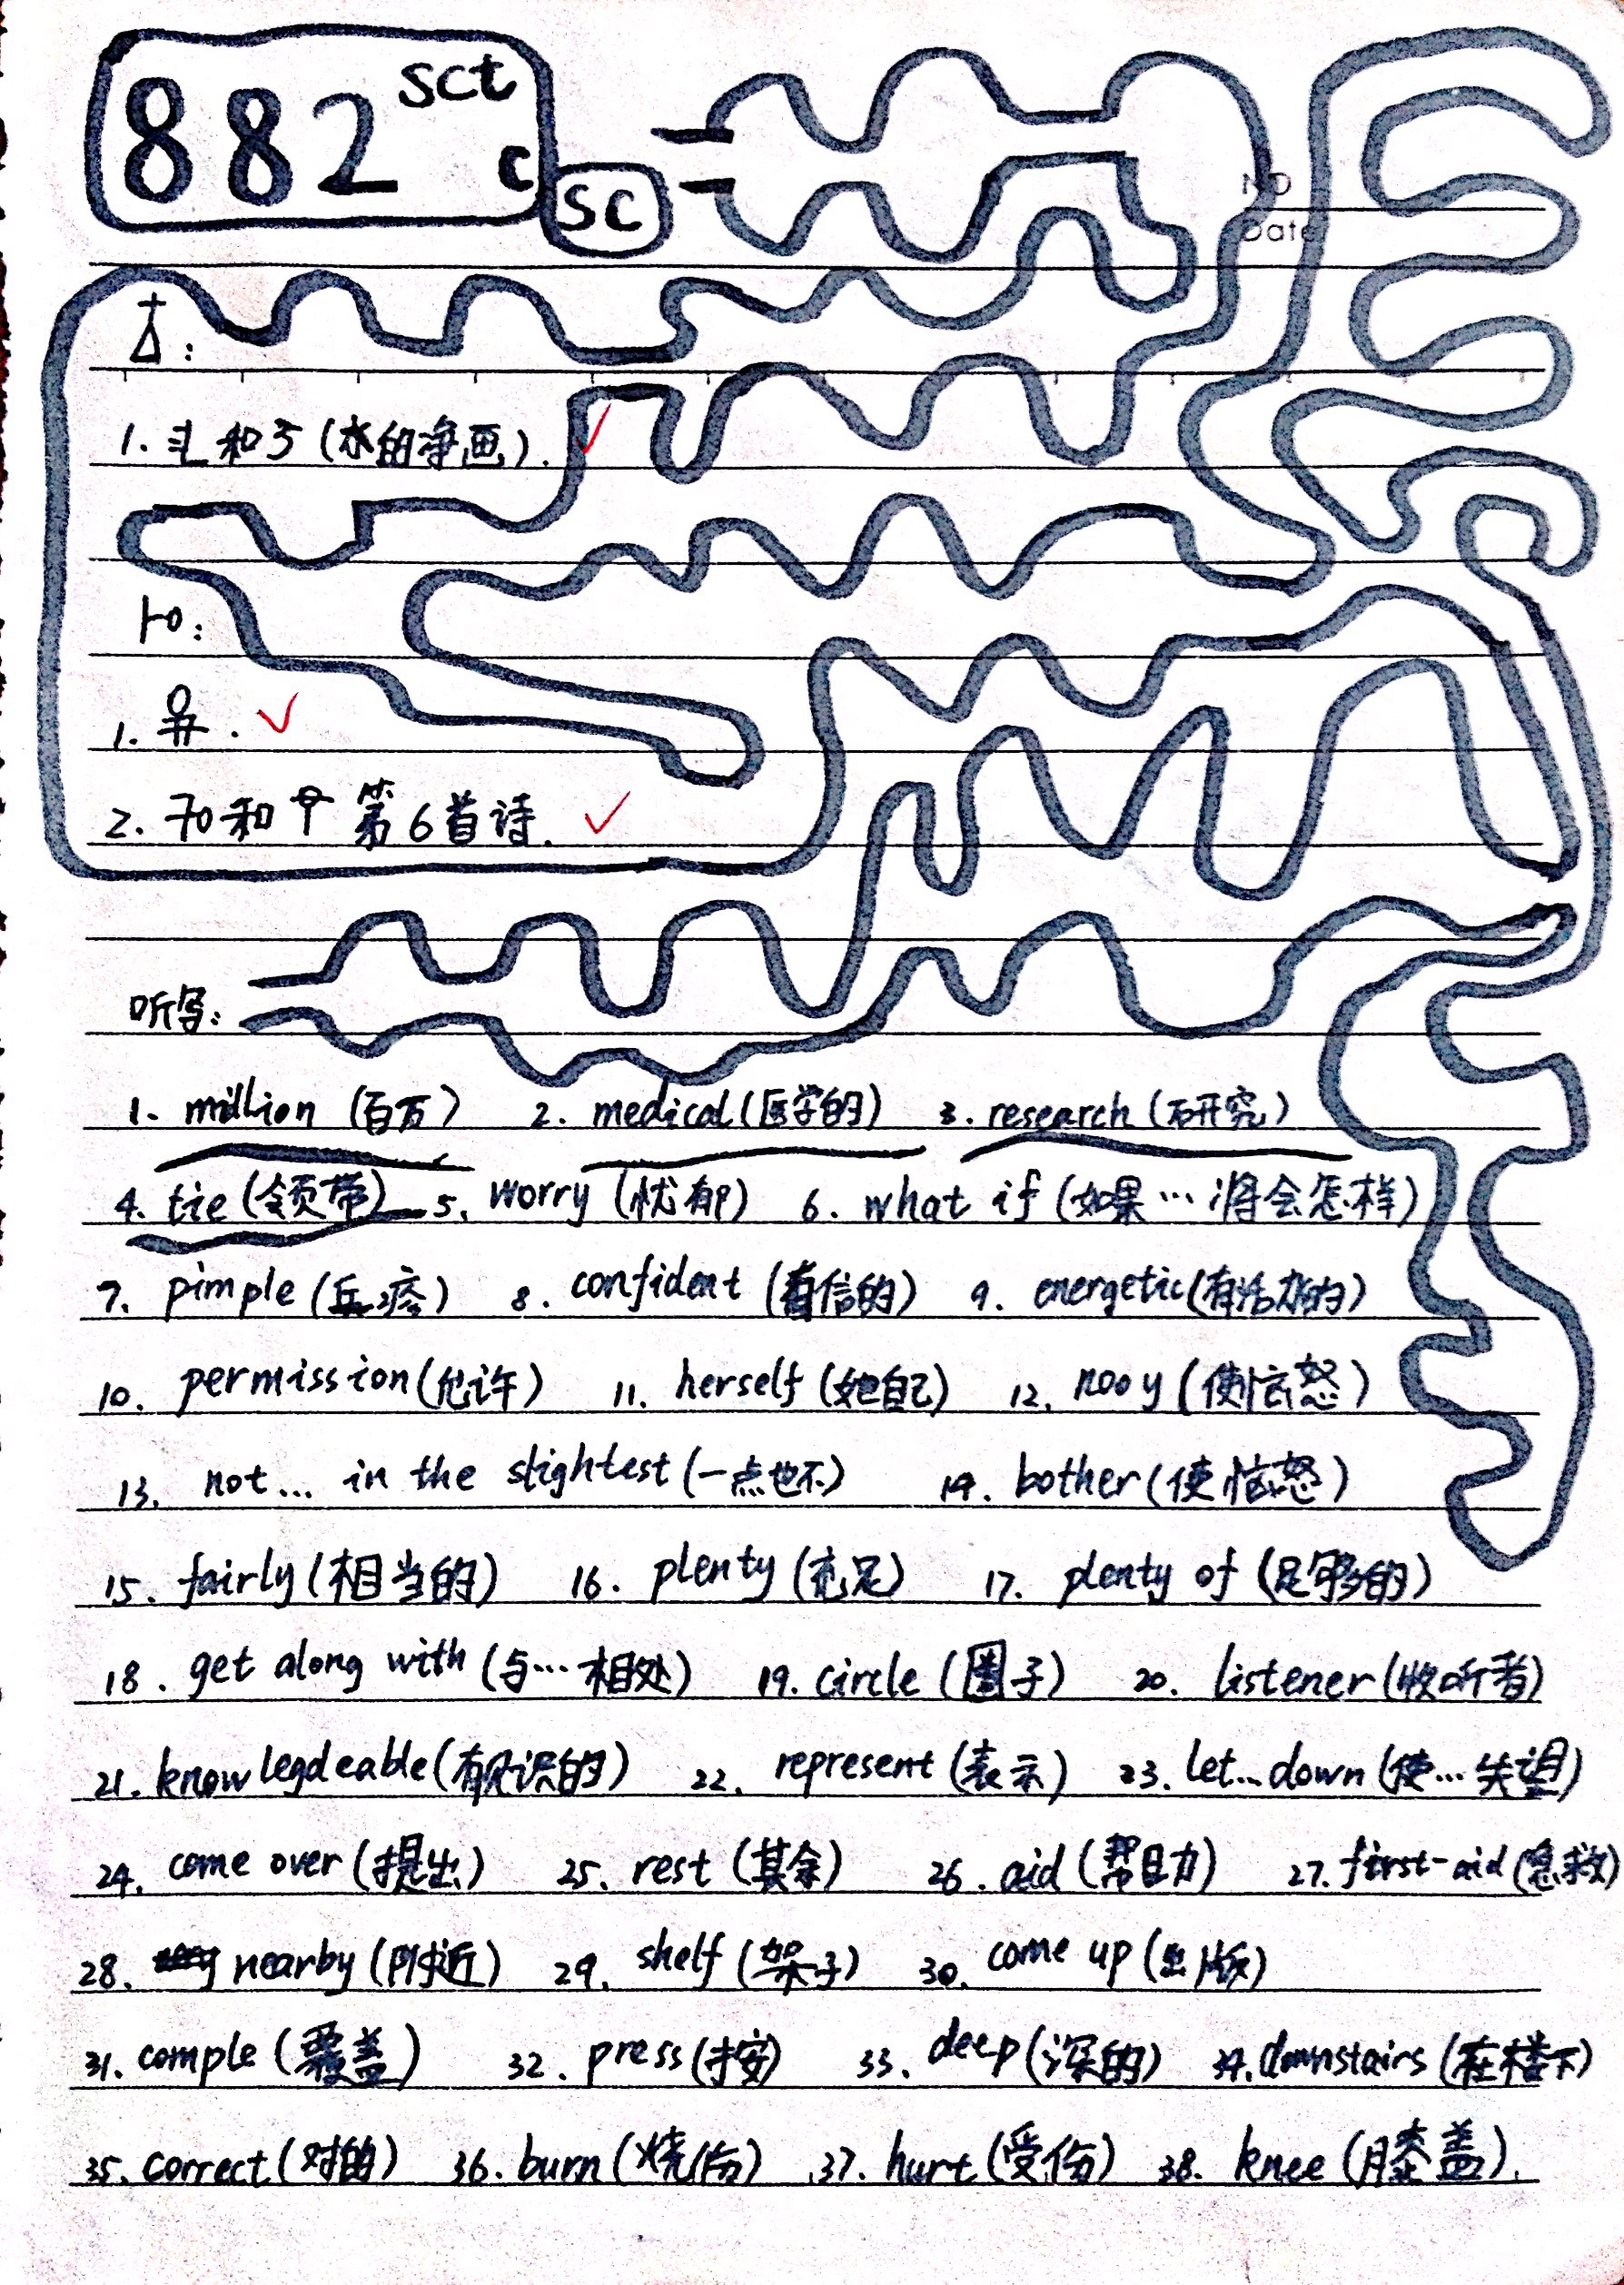 882 sct c
sc
NO
Date
1. 和 (水的净画).
1.
2. 和 第6首诗.
听写:
1. million (百万) 2. medical (医学的) 3. research (研究)
4. tie (领带) 5. worry (忧郁) 6. what if (如果…将会怎样)
7. pimple 8. confident (有信的) 9. energetic (有活力的)
10. permission (允许) 11. herself (她自己) 12. nooy (使恼怒)
13. not... in the slightest (一点也不) 14. bother (使恼怒)
15. fairly (相当的) 16. plenty (充足) 17. plenty of (足够的)
18. get along with (与…相处) 19. circle (圈子) 20. listener (收听者)
21. knowlegdeable (有见识的) 22. represent (表示) 23. let...down (使…失望)
24. come over (提出) 25. rest (其余) 26. aid (帮助) 27. first-aid (急救)
28. nearby (附近) 29. shelf (架子) 30. come up (出版)
31. comple (覆盖) 32. press (按) 33. deep (深的) 34. downstairs (在楼下)
35. correct (对的) 36. burn (烧伤) 37. hurt (受伤) 38. knee (膝盖).